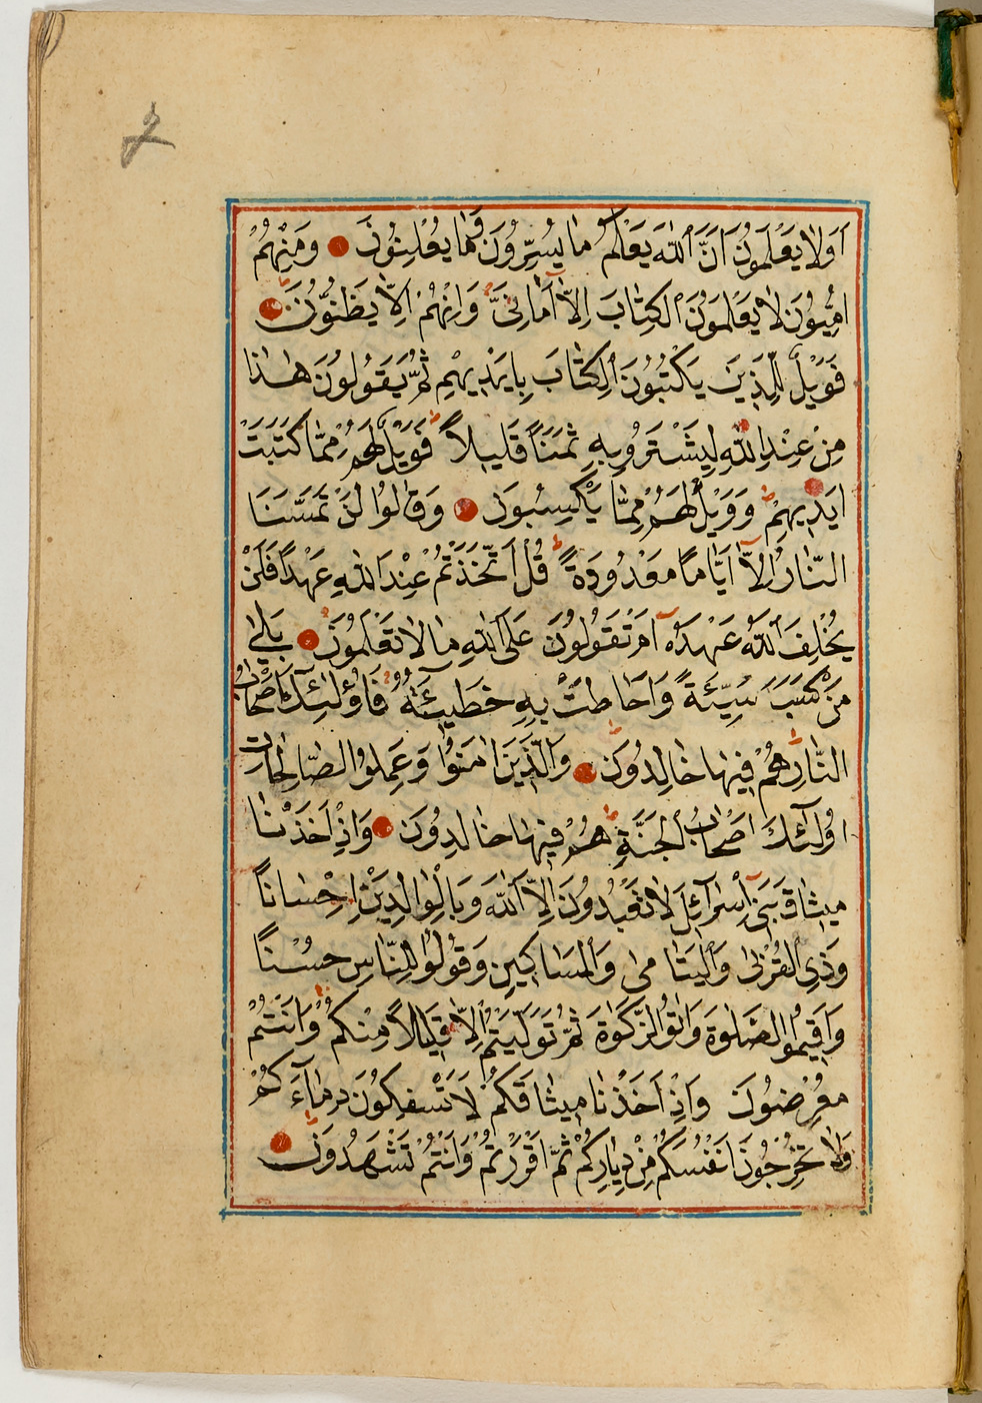 اَوَلَا يَعْلَمُونَ اَنَّ اللّٰهَ يَعْلَمُ مَا يُسِرُّونَ وَمَا يُعْلِنُونَ وَمِنْهُمْ
اُمِّيُّونَ لَا يَعْلَمُونَ الْكِتَابَ اِلَّا اَمَانِيَّ وَاِنْهُمْ اِلَّا يَظُنُّونَ
فَوَيْلٌ لِلَّذِينَ يَكْتُبُونَ الْكِتَابَ بِاَيْدِيهِمْ ثُمَّ يَقُولُونَ هٰذَا
مِنْ عِنْدِ اللّٰهِ لِيَشْتَرُوا بِهِ ثَمَنًا قَلِيلًا فَوَيْلٌ لَهُمْ مِمَّا كَتَبَتْ
اَيْدِيهِمْ وَوَيْلٌ لَهُمْ مِمَّا يَكْسِبُونَ وَقَالُوا لَنْ تَمَسَّنَا
النَّارُ اِلَّا اَيَّامًا مَعْدُودَةً قُلْ اَتَّخَذْتُمْ عِنْدَ اللّٰهِ عَهْدًا فَلَنْ
يُخْلِفَ اللّٰهُ عَهْدَهُ اَمْ تَقُولُونَ عَلَى اللّٰهِ مَا لَا تَعْلَمُونَ بَلٰى
مَنْ كَسَبَ سَيِّئَةً وَاَحَاطَتْ بِهِ خَطِيئَتُهُ فَاُولٰئِكَ اَصْحَابُ
النَّارِ هُمْ فِيهَا خَالِدُونَ وَالَّذِينَ اٰمَنُوا وَعَمِلُوا الصَّالِحَاتِ
اُولٰئِكَ اَصْحَابُ الْجَنَّةِ هُمْ فِيهَا خَالِدُونَ وَاِذْ اَخَذْنَا
مِيثَاقَ بَنِي اِسْرَآئِلَ لَا تَعْبُدُونَ اِلَّا اللّٰهَ وَبِالْوَالِدَيْنِ اِحْسَانًا
وَذِي الْقُرْبٰى وَالْيَتَامٰى وَالْمَسَاكِينِ وَقُولُوا لِلنَّاسِ حُسْنًا
وَاَقِيمُوا الصَّلٰوةَ وَاٰتُوا الزَّكَوٰةَ ثُمَّ تَوَلَّيْتُمْ اِلَّا قَلِيلًا مِنْكُمْ وَاَنْتُمْ
مُعْرِضُونَ وَاِذْ اَخَذْنَا مِيثَاقَكُمْ لَا تَسْفِكُونَ دِمَآءَكُمْ
وَلَا تُخْرِجُونَ اَنْفُسَكُمْ مِنْ دِيَارِكُمْ ثُمَّ اَقْرَرْتُمْ وَاَنْتُمْ تَشْهَدُونَ